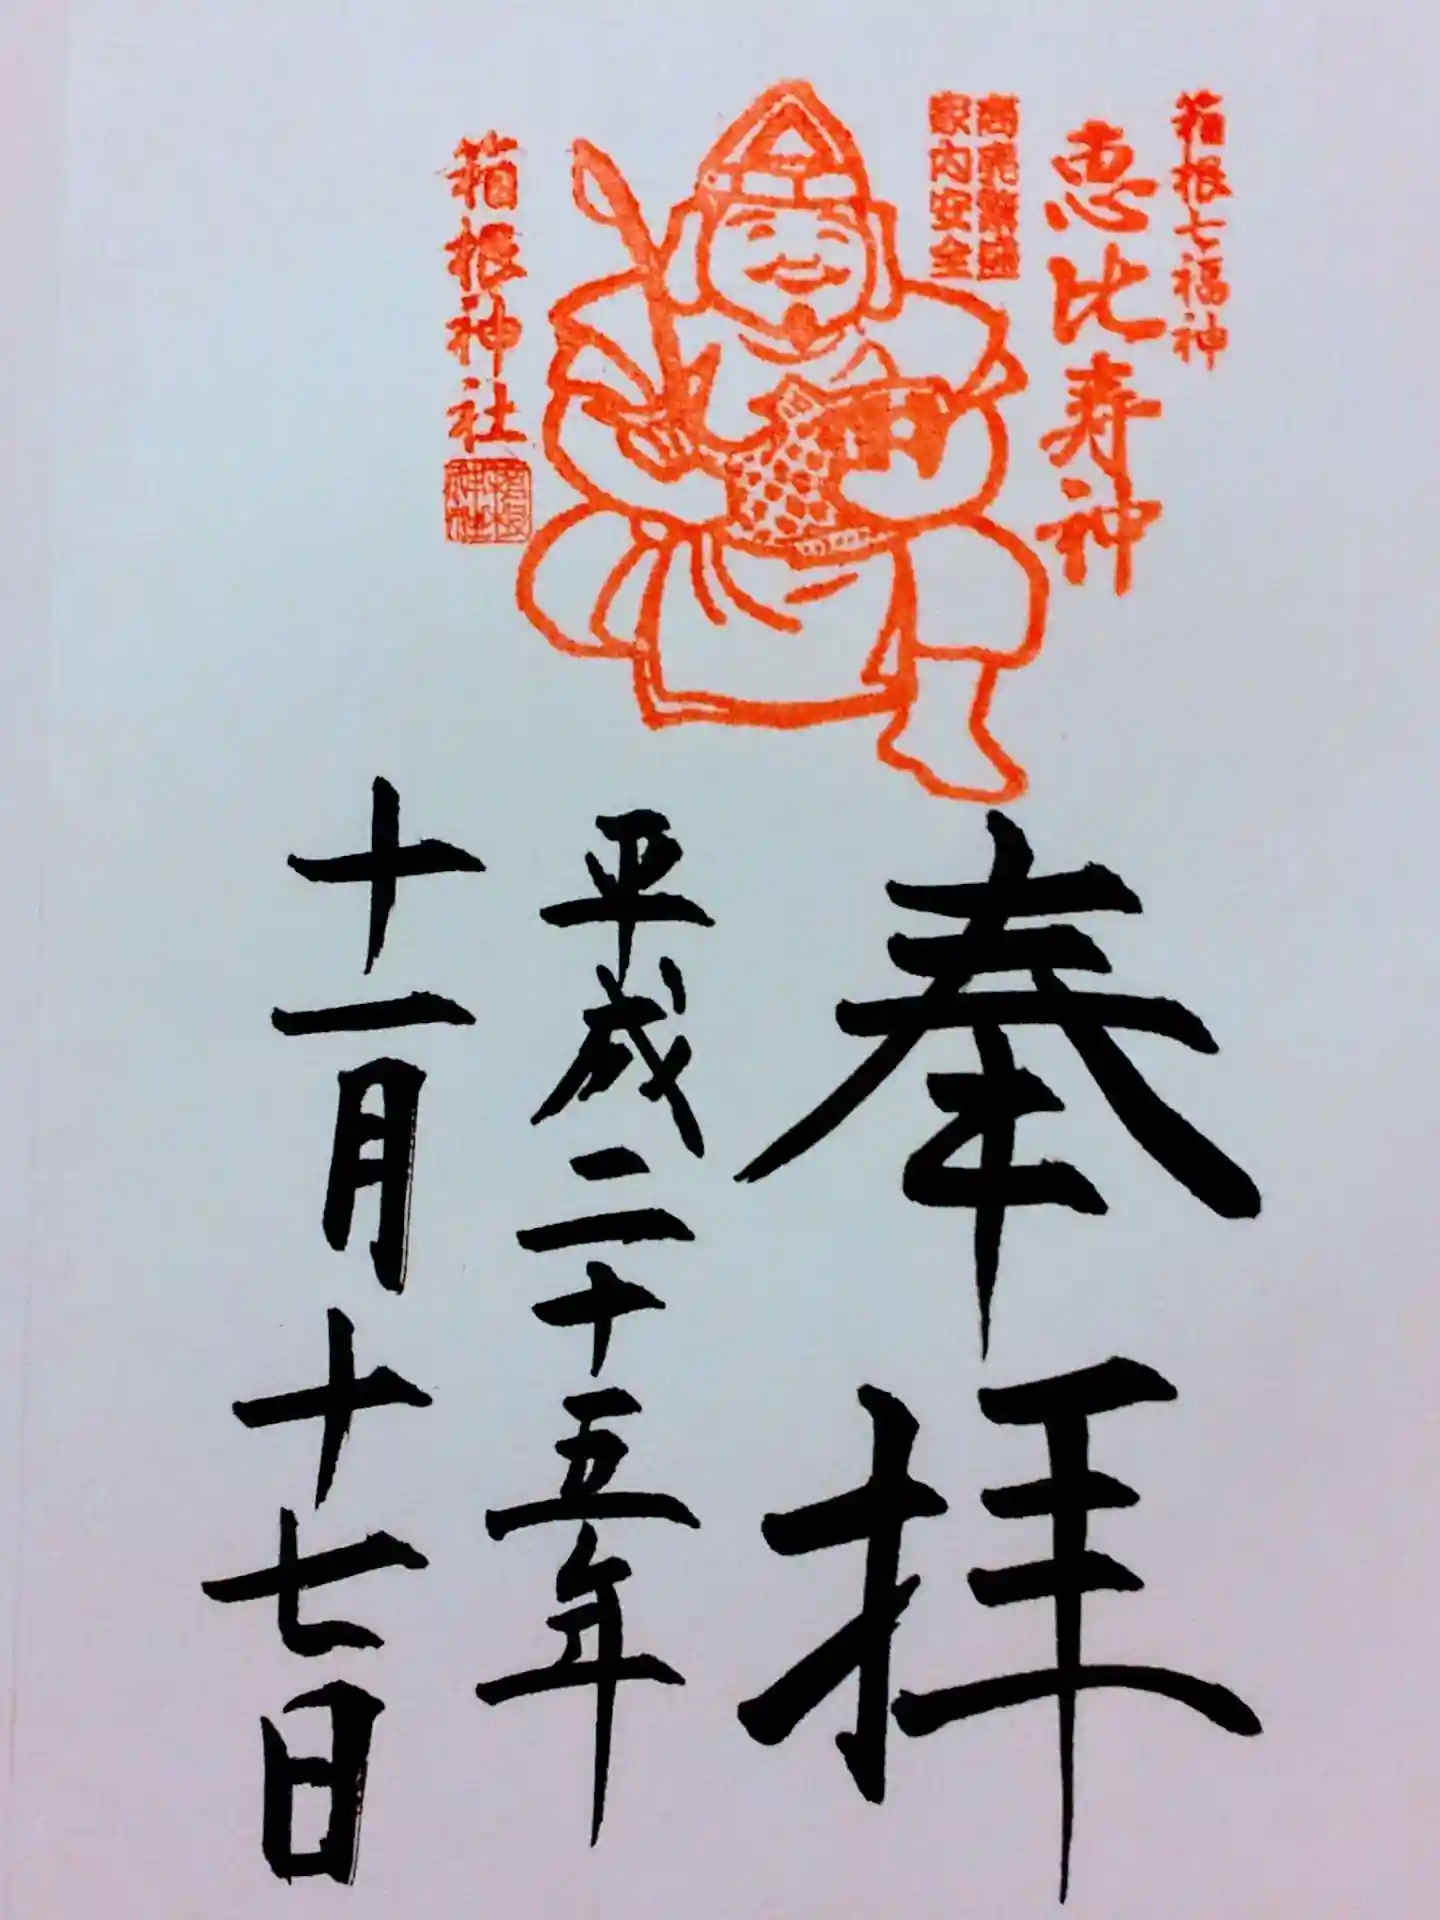 箱根七福神
恵比寿神
商売繁盛
家内安全
箱根神社
箱根
神社
奉拝
平成二十五年
十一月十七日